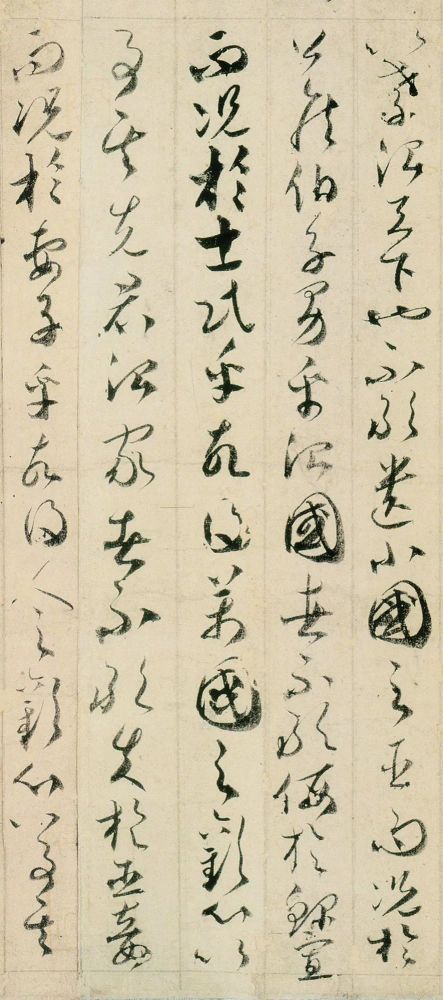 以孝治天下也不敢遺小國之臣而況於
公侯伯子男乎治國者不敢侮於鰥寡
而況於士民乎故得萬國之懽心以
事其先君治家者不敢失於臣妾
而況於妻子乎故得人之懽心以事其